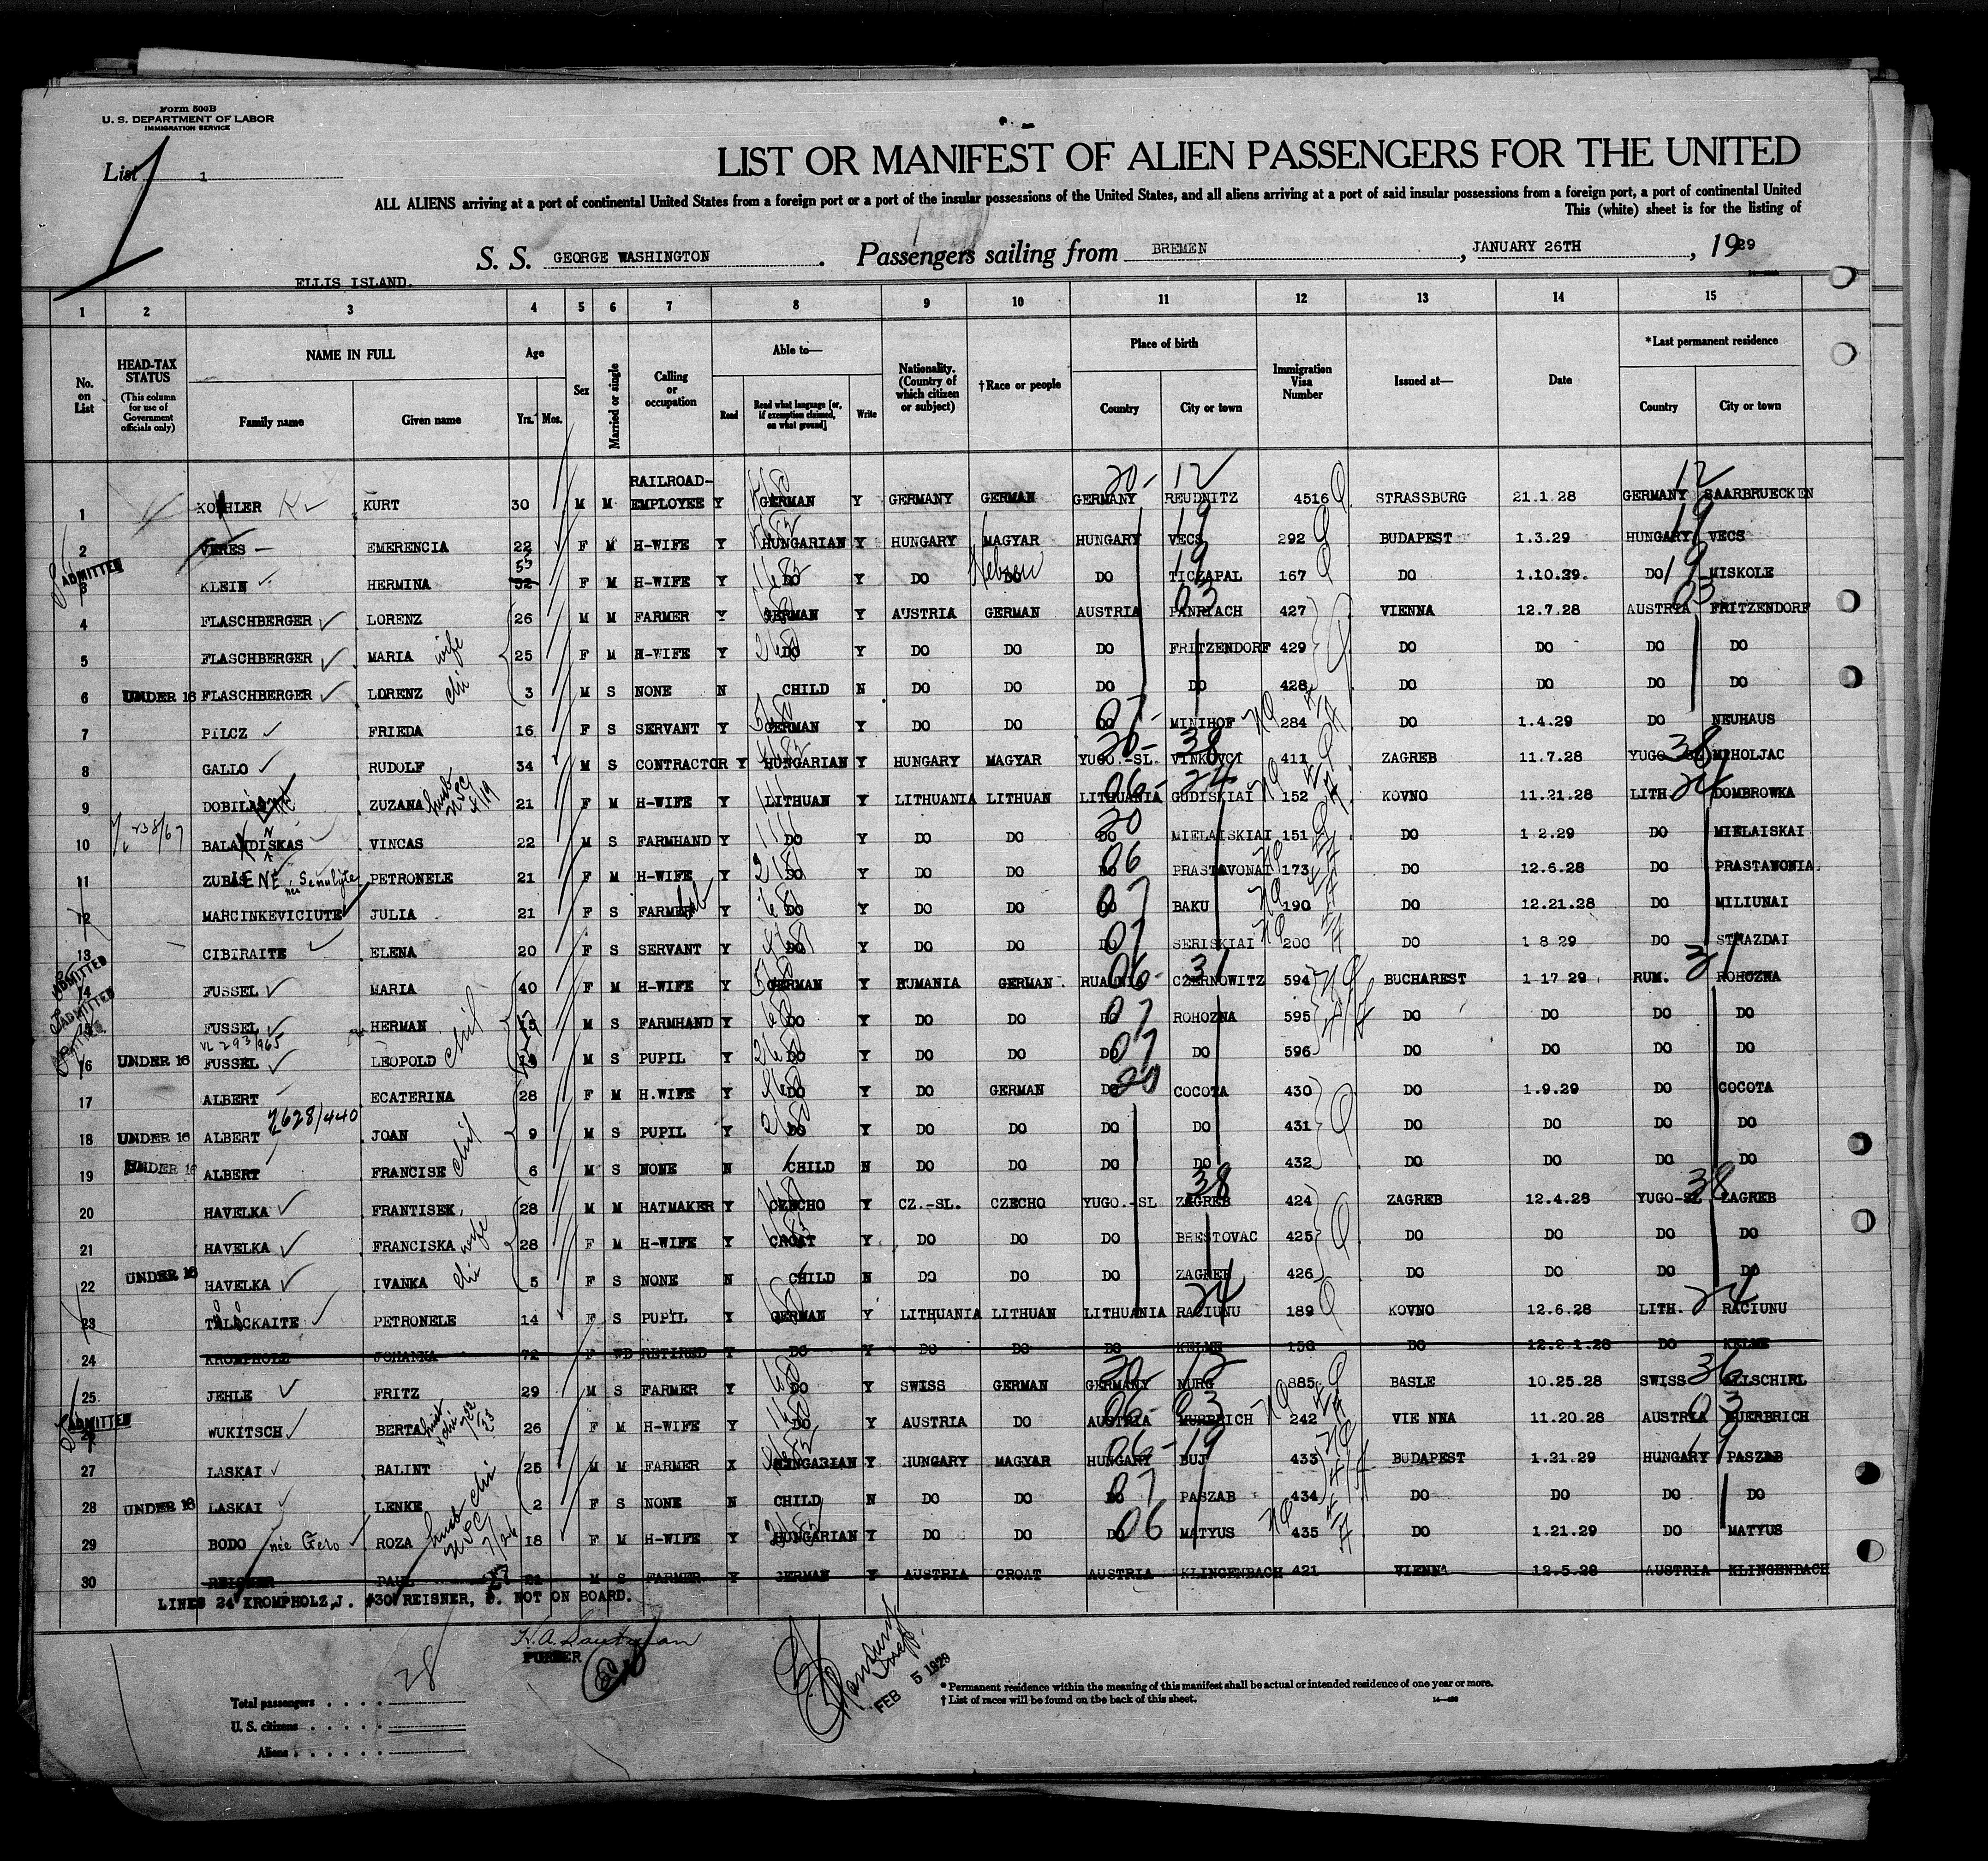 Form 500B
U. S. DEPARTMENT OF LABOR
IMMIGRATION SERVICE
List 1
LIST OR MANIFEST OF ALIEN PASSENGERS FOR THE UNITED
ALL ALIENS arriving at a port of continental United States from a foreign port or a port of the insular possessions of the United States, and all aliens arriving at a port of said insular possessions from a foreign port, a port of continental United
This (white) sheet is for the listing of
S. S. GEORGE WASHINGTON. Passengers sailing from BREMEN, JANUARY 26TH, 1929
ELLIS ISLAND.
1 2 3 4 5 6 7 8 9 10 11 12 13 14 15
No. on List
HEAD-TAX STATUS (This column for use of Government officials only)
NAME IN FULL Family name Given name
Age Yrs. Mos.
Sex
Married or single
Calling or occupation
Able to— Read Read what language [or, if exemption claimed, on what ground] Write
Nationality. (Country of which citizen or subject)
†Race or people
Place of birth Country City or town
Immigration Visa Number
Issued at—
Date
*Last permanent residence Country City or town
1 KOHLER KURT 30 M M RAILROAD-EMPLOYEE Y GERMAN Y GERMANY GERMAN GERMANY REUDNITZ 4516 STRASSBURG 21.1.28 GERMANY SAARBRUECKEN
2 VERES EMERENCIA 22 F M H-WIFE Y HUNGARIAN Y HUNGARY MAGYAR HUNGARY VECS 292 BUDAPEST 1.3.29 HUNGARY VECS
ADMITTED 3 KLEIN HERMINA 53 52 F M H-WIFE Y DO Y DO DO Hebrew DO TICZAPAL 167 DO 1.10.29. DO MISKOLE
4 FLASCHBERGER LORENZ 26 M M FARMER Y GERMAN Y AUSTRIA GERMAN AUSTRIA PANRIACH 427 VIENNA 12.7.28 AUSTRIA FRITZENDORF
5 FLASCHBERGER MARIA wife 25 F M H-WIFE Y DO Y DO DO DO FRITZENDORF 429 DO DO DO DO
6 UNDER 16 FLASCHBERGER LORENZ chi 3 M S NONE N CHILD N DO DO DO DO 428 DO DO DO DO
7 PILCZ FRIEDA 16 F S SERVANT Y GERMAN Y DO DO DO MINIHOF 284 DO 1.4.29 DO NEUHAUS
8 GALLO RUDOLF 34 M S CONTRACTOR Y HUNGARIAN Y HUNGARY MAGYAR YUGO.-SL. VINKOVCI 411 ZAGREB 11.7.28 YUGO-SL MIHOLJAC
9 ZUZANA husb 21 F M H-WIFE Y LITHUAN Y LITHUANIA LITHUAN LITHUANIA GUDISKIAI 152 KOVNO 11.21.28 LITH. DOMBROWKA
10 BALANDISKAS VINCAS 22 M S FARMHAND Y DO Y DO DO DO MIELAISKIAI 151 DO 1 2.29 DO MIELAISKAI
11 ZUBIENE PETRONELE 21 F M H-WIFE Y DO Y DO DO DO PRASTAVONAI 173 DO 12.6.28 DO PRASTAWONIA.
12 MARCINKEVICIUTE JULIA 21 F S FARMER Y DO Y DO DO DO BAKU 190 DO 12.21.28 DO MILIUNAI
13 CIBIRAITE ELENA 20 F S SERVANT Y DO Y DO DO DO SERISKIAI 200 DO 1 8 29 DO STRAZDAI
ADMITTED 14 FUSSEL MARIA 40 F M H-WIFE Y GERMAN Y RUMANIA GERMAN CZERNOWITZ 594 BUCHAREST 1-17-29 RUM. ROHOZNA
ADMITTED 15 FUSSEL HERMAN 15 M S FARMHAND Y DO Y DO DO DO ROHOZNA 595 DO DO DO DO
16 UNDER 16 FUSSEL LEOPOLD M S PUPIL Y DO Y DO DO DO DO 596 DO DO DO DO
17 ALBERT ECATERINA 28 F M H.WIFE Y DO Y DO GERMAN DO COCOTA 430 DO 1.9.29 DO COCOTA
2628/440
18 UNDER 16 ALBERT JOAN 9 M S PUPIL Y DO Y DO DO DO DO 431 DO DO DO DO
19 UNDER 16 ALBERT FRANCISE 6 M S NONE N CHILD N DO DO DO DO 432 DO DO DO DO
20 HAVELKA FRANTISEK 28 M M HATMAKER Y CZECHO Y CZ.-SL. CZECHO YUGO.-SL ZAGREB 424 ZAGREB 12.4.28 YUGO-SL ZAGREB
21 HAVELKA FRANCISKA wife 28 F M H-WIFE Y CROAT Y DO DO DO BRESTOVAC 425 DO DO DO DO
22 UNDER 16 HAVELKA IVANKA chi 5 F S NONE N CHILD N DO DO DO ZAGREB 426 DO DO DO DO
23 PETRONELE 14 F S PUPIL Y GERMAN Y LITHUANIA LITHUAN LITHUANIA RACIUNU 189 KOVNO 12.6.28 LITH. RACIUNU
24 KROMPHOLZ JOHANNA 72 F WD RETIRED Y DO Y DO DO DO KELME 158 DO 12.2 1.28 DO KELME
25 JEHLE FRITZ 29 M S FARMER Y DO Y SWISS GERMAN GERMANY NURG 885 BASLE 10.25.28 SWISS
ADMITTED 26 WUKITSCH BERTA 26 F M H-WIFE Y DO Y AUSTRIA DO AUSTRIA 242 VIE NNA 11.20.28 AUSTRIA
27 LASKAI BALINT 25 M M FARMER X HUNGARIAN Y HUNGARY MAGYAR HUNGARY BUJ 433 BUDAPEST 1.21.29 HUNGARY PASZAB
28 UNDER 16 LASKAI LENKE chi 2 F S NONE N CHILD N DO DO DO PASZAB 434 DO DO DO DO
29 BODO née Gero ROZA husb 18 F M H-WIFE Y HUNGARIAN Y DO DO DO MATYUS 435 DO 1.21.29 DO MATYUS
30 REISNER PAUL 21 M S FARMER Y GERMAN Y AUSTRIA CROAT AUSTRIA KLINGENBACH 421 VIENNA 12.5.28 AUSTRIA KLINGENBACH
LINES 24 KROMPHOLZ,J. #30 REISNER, P. NOT ON BOARD.
PURSER
28
FEB 5 1929
Total passengers
U. S. citizens
Aliens
* Permanent residence within the meaning of this manifest shall be actual or intended residence of one year or more.
† List of races will be found on the back of this sheet.